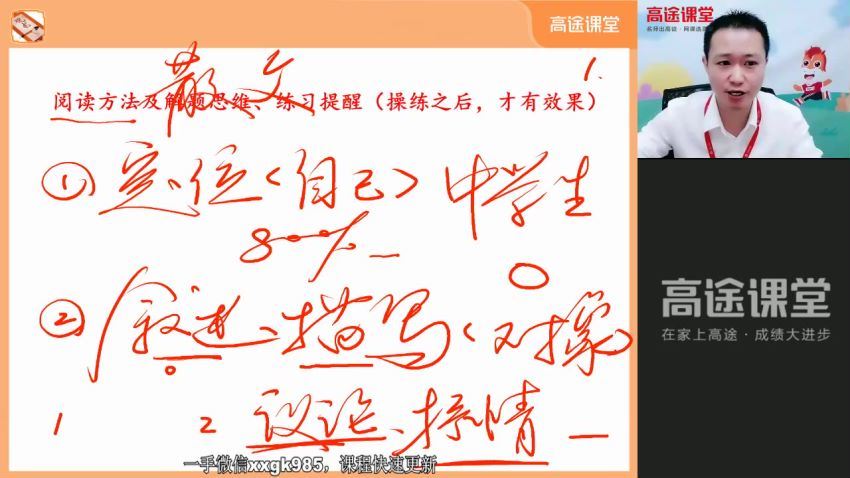 高途课堂
高途课堂
名师出高徒·网课选高途
散文
1.
阅读方法及解题思维、练习提醒（操练之后，才有效果）
① 定位〈自己〉中学生
80%
② 叙述、描写〈对象〉
1 2 议论、抒情
高途课堂
在家上高途·成绩大进步
一手微信xxgk985，课程快速更新